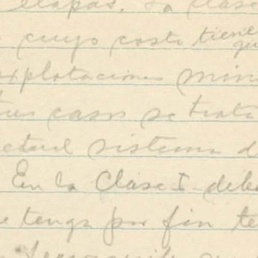 etapas. La clase
cuyo costo tiene
que
explotaciones min
tres casos se trata
sistema d
En la Clase I debe
e tenga por fin te